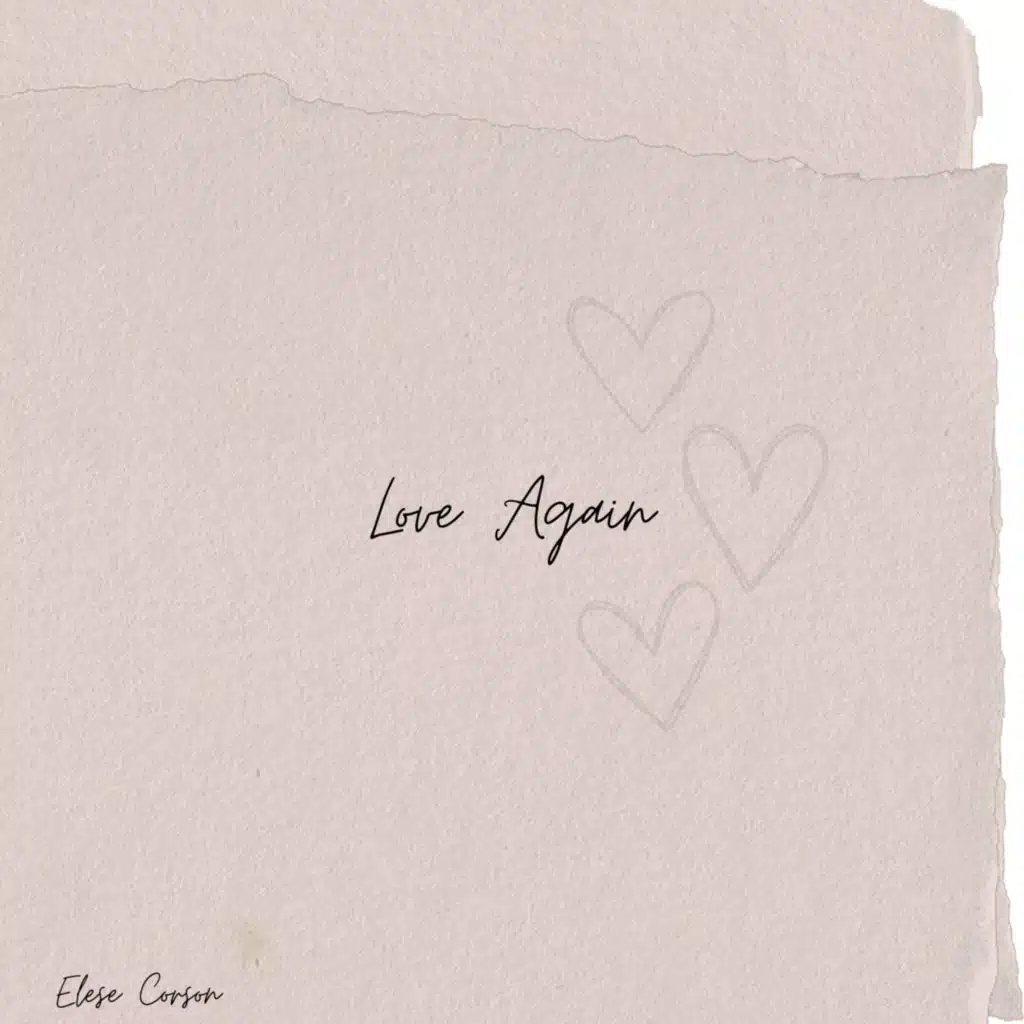 Love Again
Elese Corson